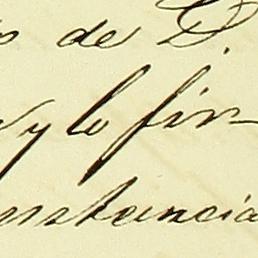 s de D.
y lo fir
nstancia